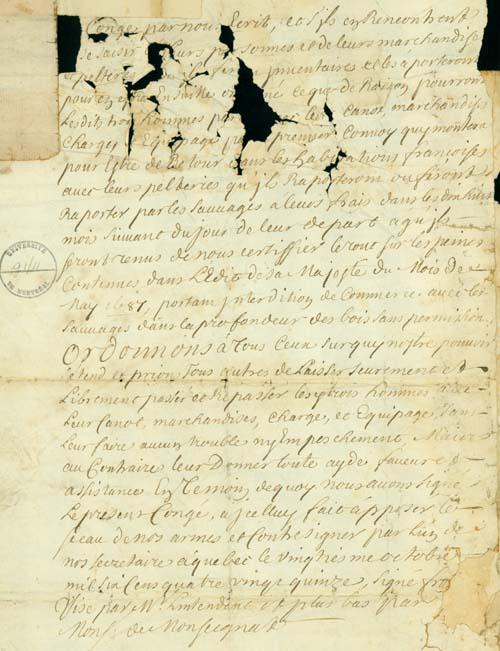 Congé par nous Ecrit, et s'ils en Rencontrent
se saisir de leurs personnes et de leurs marchandises
et pelteries inventaires et les aporteront
pour estre Ensuitte ce que de Raison pourront
Lesdits trois hommes leur Canot, marchandises
Charge, Equipage premier Convoy quy montera
pour Estre de Retour dans les habitations françoises
avec leurs pelteries qu'ils Raporteront ou feront
Raporter par les sauvages a leurs frais dans les dix huit
mois suivant du jour de leur depart a quoy ils
seront tenus de nous certiffier le tout sur les peines
Contenues, dans L'Edit de sa Majesté du Mois de
May 1687, portant jnterdition de Commerce avec les
sauvages dans la profondeur des bois sans permission
Ordonnons à Tous Ceux sur quy nostre pouvoir
s'etend et prions Tous autres de Laisser seurement et
Librement passer et Repasser lesd trois hommes avec
Leur Canot, marchandises, charge, et Equipage, sans
Leur faire aucun trouble ny Empeschement Mais
au Contraire leur Donner toute ayde faveur et
assistance En Temoin, de quoy nous avons signé
Le present Congé, a jceluy fait apposer le
sceau de nos armes et Contresigner par L'un de
nos secretaire a quebec le vingtiesme octobre
mil six Cens quatre vingt quinze, signé
Visé par Mr L'intendent et plus bas Par
Monsr de Monseignat
UNIVERSITÉ
DE MONTRÉAL